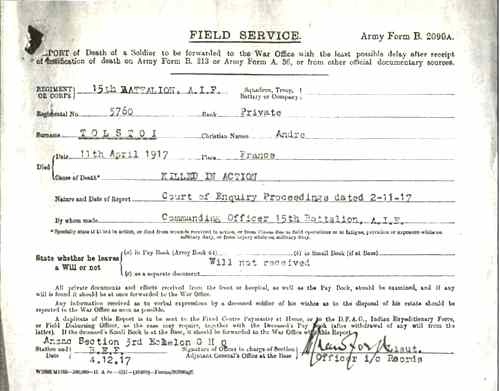 FIELD SERVICE. Army Form B. 2090A.
PORT of Death of a Soldier to be forwarded to the War Office with the least possible delay after receipt
of notification of death on Army Form B. 213 or Army Form A. 36, or from other official documentary sources.
REGIMENT OR CORPS } 15th BATTALION, A.I.F. Squadron, Troop, Battery or Company }
Regimental No 5760 Rank Private
Surname TOLSTOI Christian Names Andre
Died { Date 11th April 1917 Place France
Cause of Death* KILLED IN ACTION
Nature and Date of Report Court of Enquiry Proceedings dated 2-11-17
By whom made Commanding Officer 15th Battalion, A.I.F.
* Specially state if killed in action, or died from wounds received in action, or from illness due to field operations or to fatigue, privation or exposure while on
military duty, or from injury while on military duty.
State whether he leaves a Will or not { (a) in Pay Book (Army Book 64) (b) in Small Book (if at Base)
Will not received
(c) as a separate document
All private documents and effects received from the front or hospital, as well as the Pay Book, should be examined, and if any
will is found it should be at once forwarded to the War Office.
Any information received as to verbal expressions by a deceased soldier of his wishes as to the disposal of his estate should be
reported to the War Office as soon as possible.
A duplicate of this Report is to be sent to the Fixed Centre Paymaster at Home, or to the D.F.A.G., Indian Expeditionary Force,
or Field Disbursing Officer, as the case may require, together with the Deceased's Pay Book (after withdrawal of any will from the
latter). If the deceased's Small Book is at the Base, it should be forwarded to the War Office with this Report.
Anzac Section 3rd Echelon G H Q
Signature of Officer in charge of Section Lieut.
Station and Date } B.E.F. Adjutant General's Office at the Base } Officer i/c Records
4.12.17